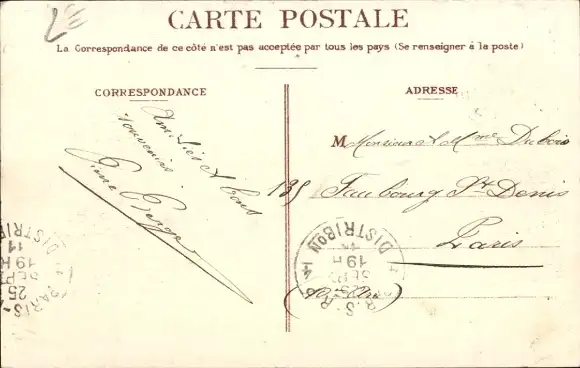 CARTE POSTALE
La Correspondance de ce côté n'est pas acceptée par tous les pays (Se renseigner à la poste)
CORRESPONDANCE
Amitiés et bons
souvenirs
ADRESSE
M Monsieur et Mme Dubois
Faubourg St Denis
Paris
PARIS
25
SEPT
19H
11
DISTRIB
DISTRIBON
19H
SEPT